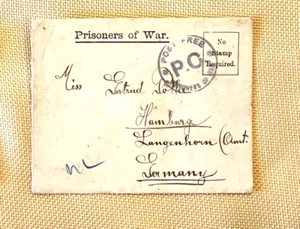 Prisoners of War.
No
Stamp
Required.
POST FREE
P.C.
PRISONERS OF WAR
Miss Gertrud
Hamburg
Langenhorn (Amt.
Germany